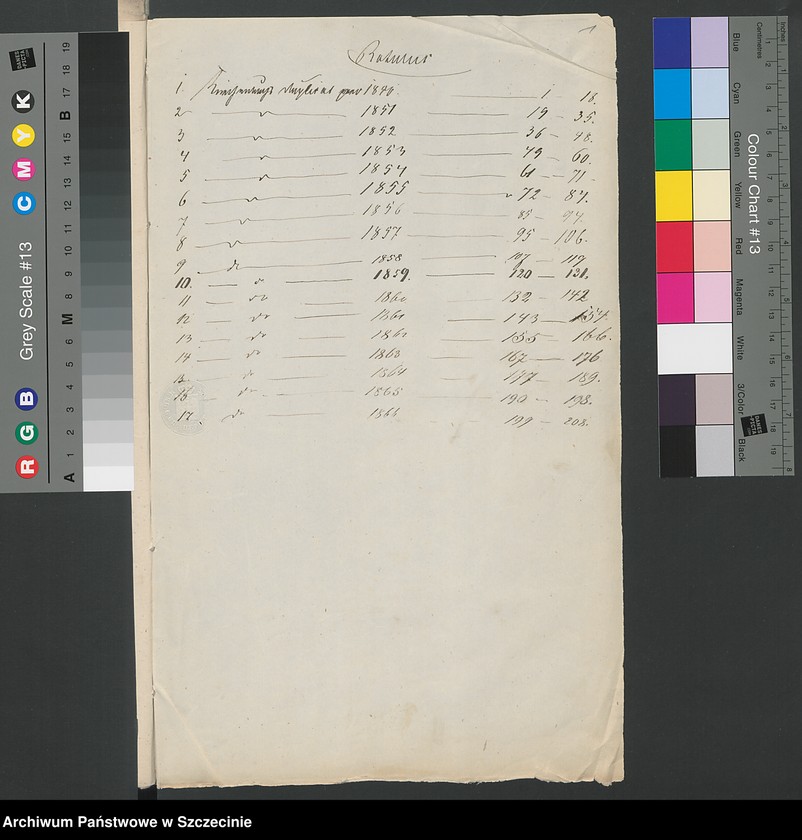 Rotulus
1
1. Kirchenbuchs Duplicat pro 1850. 1 - 18.
2 " 1851 19 - 35.
3 " 1852 36 - 48.
4 " 1853 49 - 60.
5 " 1854 61 - 71.
6 " 1855 72 - 84.
7 " 1856 85 - 94.
8 " 1857 95 - 106.
9 do 1858 107 - 119
10. do 1859. 120 - 131.
11 do 1860 132 - 142
12 do 1861 143 - 154.
13 do 1862 155 - 166.
14 do 1863 167 - 176
15. do 1864 177 - 189.
16 do 1865 190 - 198.
17. do 1866 199 - 208.
Grey Scale #13
R G B C M Y K
A 1 2 3 4 5 6 M 8 9 10 11 12 13 14 15 B 17 18 19
DANES PICTA
Colour Chart #13
Blue
Cyan
Green
Yellow
Red
Magenta
White
3/Color
Black
Inches
Centimetres
Archiwum Państwowe w Szczecinie